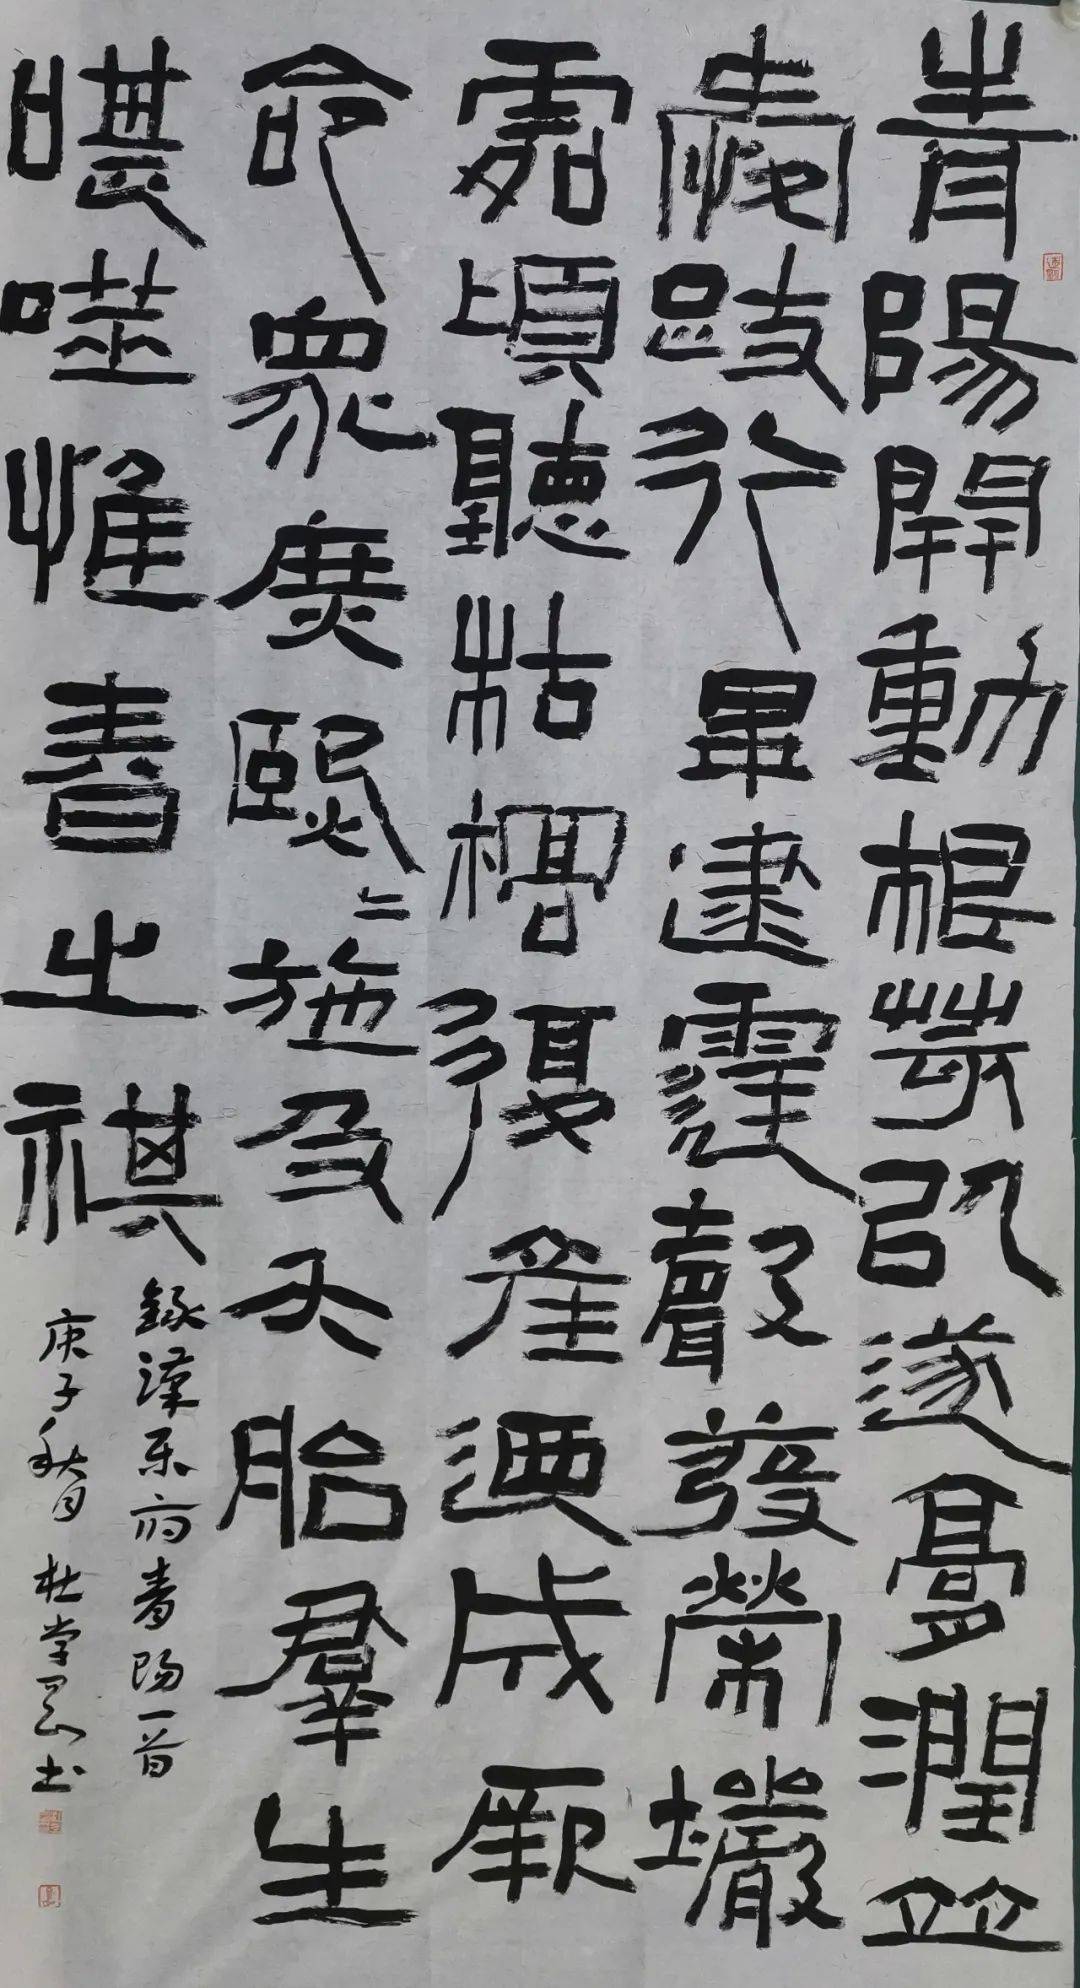 青陽開動根荄㠯遂膏潤並
愛跂行畢逮霆聲發榮壧
處頃聽枯槁復產迺成厥
命眾庶熙〻施及夭胎羣生
啿噬惟春之祺
錄漢乐府青陽一首
庚子秋日杜学书